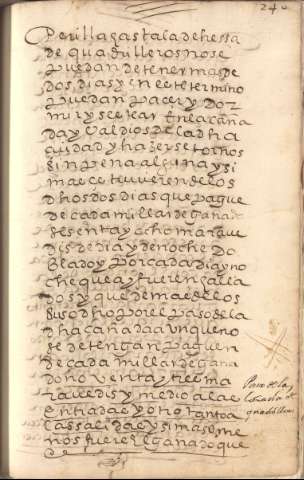 24
de quadrilleros no se
puedan detener mas de
dos dias y en este termino
puedan pacer y dor
mir y sestear en la caña
da y valdios de la dha
ciudad y hazer se tornos
sin pena alguna y si
mas estuvieren de los
dhos dos dias que pague
de cada millar de ganado
sesenta y ocho marave
dis de dia y de noche do
blado y por cada dia y no
che que ay fueren halla
dos y que demas de los
suso dho por el paso de la
dha cañada aunque no
se detengan paguen
de cada millar de gana
do noventa y tres ma
ravedis y medio a la
entrada e y otro tanto a
la salida e y si mas o me
nos fuere el ganado que
de